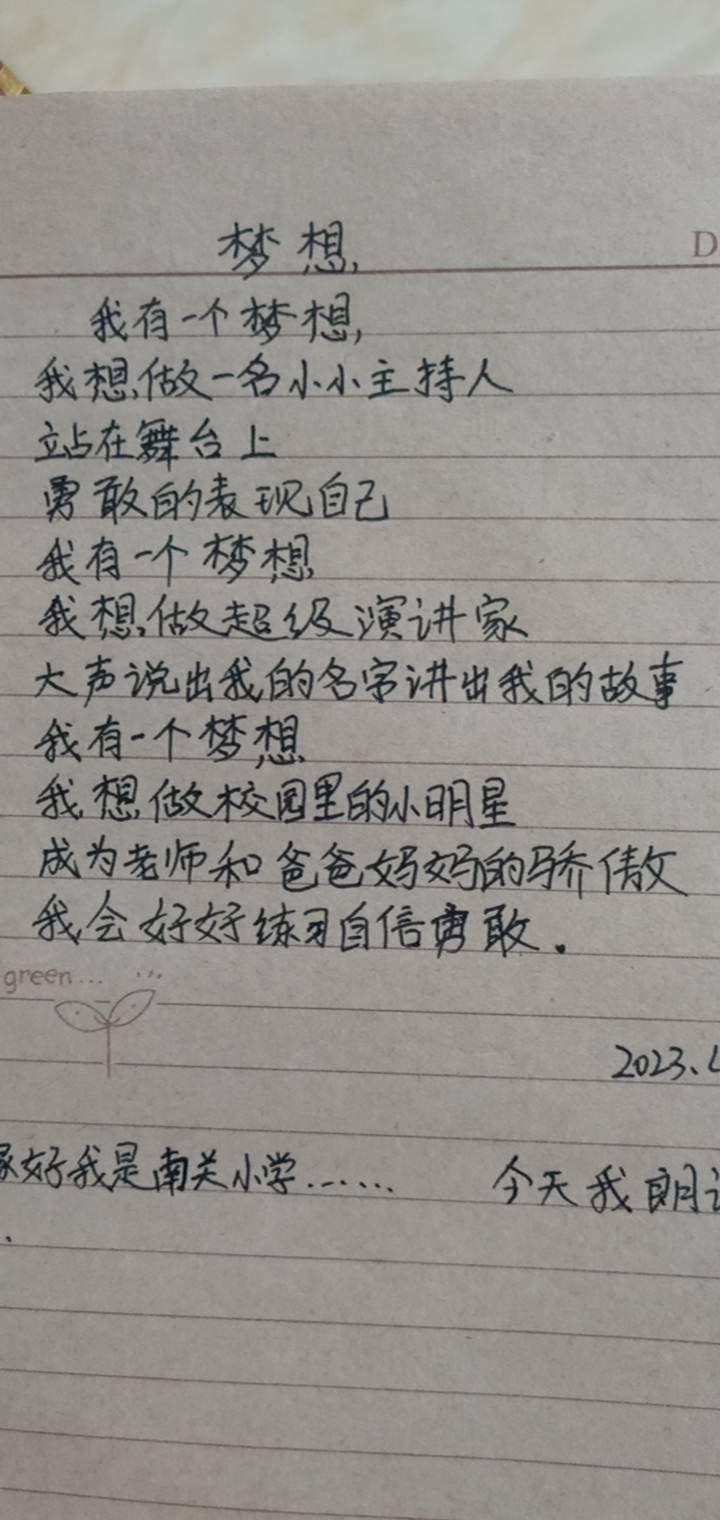 D
梦想
我有一个梦想,
我想做一名小小主持人
站在舞台上
勇敢的表现自己
我有一个梦想
我想做超级演讲家
大声说出我的名字讲出我的故事
我有一个梦想
我想做校园里的小明星
成为老师和爸爸妈妈的骄傲
我会好好练习自信勇敢.
green... ...
2023.
好我是南关小学...... 今天我朗